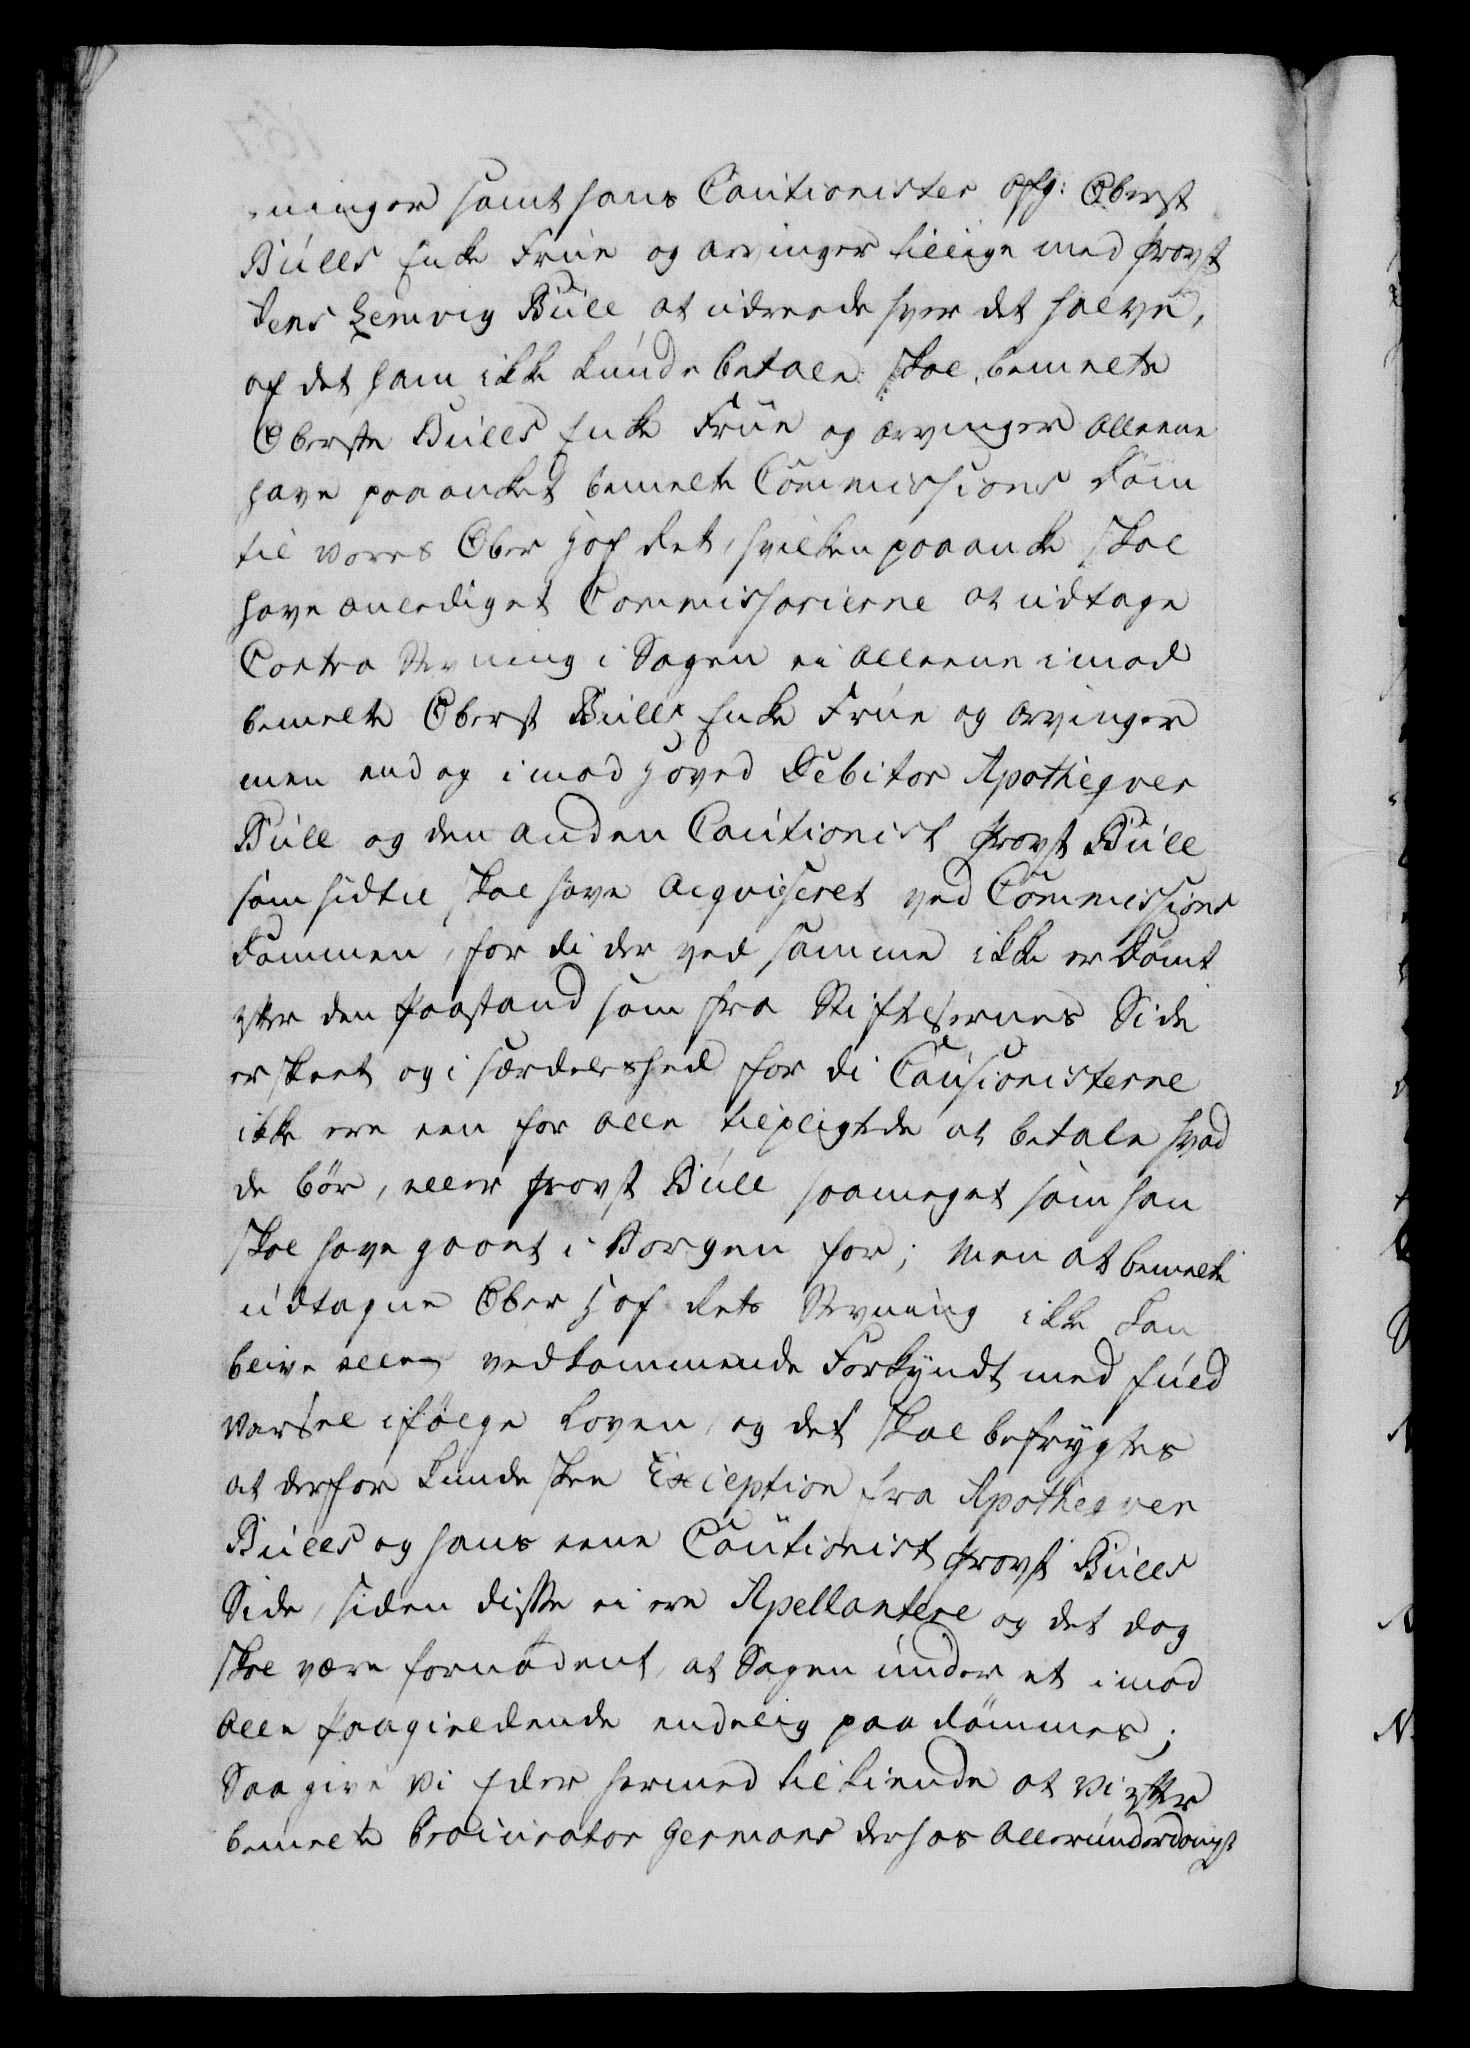 ninger samt hans Cautionister afg: Oberst
Bülls Enke Frue og arvinger tillige med Provst
Jens Lemvig Büll at udreede hver det halve,
af det ham ikke kunde betale skal, bemelte
Oberste Bülls Enke Frue og arvinger alleene
have paaanket bemelte Commissions Dom
til vores Ober Hof Ret, hvilken paaanke skal
have anlediget Commissarierne at udtage
Contra Stevning i Sagen ei alleene imod
bemelte Oberst Bülls Enke Frue og arvinger
men end og imod Hoved Debitor Apotheqver
Büll og den anden Cautionist Provst Büll
som hidtil skal have acqviseret ved Commissions
Dommen, for di der ved samme ikke er Dømt
efter den Paastand som fra Stiftelsernes Side
er skeet og i særdeleshed for di Cautionisterne
ikke ere een for alle tilpligtede at betale hvad
de bør, eller Provst Büll saameget som han
skal have gaaet i Borgen for; Men at bemelte
udtagne Ober Hof Rets Stevning ikke kan
blive alle vedkommende Forkyndt med fuld
Varsel ifølge Loven, og det skal befrygtes
at derfor kunde skee Exception fra Apotheqver
Bülls og hans eene Cautionist Provst Bülls
Side, siden disse ei ere Apellantere og det dog
skal være fornødent, at Sagen under et imod
alle Paagieldende endelig paadømmes;
Saa give vi Eder hermed tilkiende at Vi efter
bemelte Procurator Germans derhos allerunderdanigst